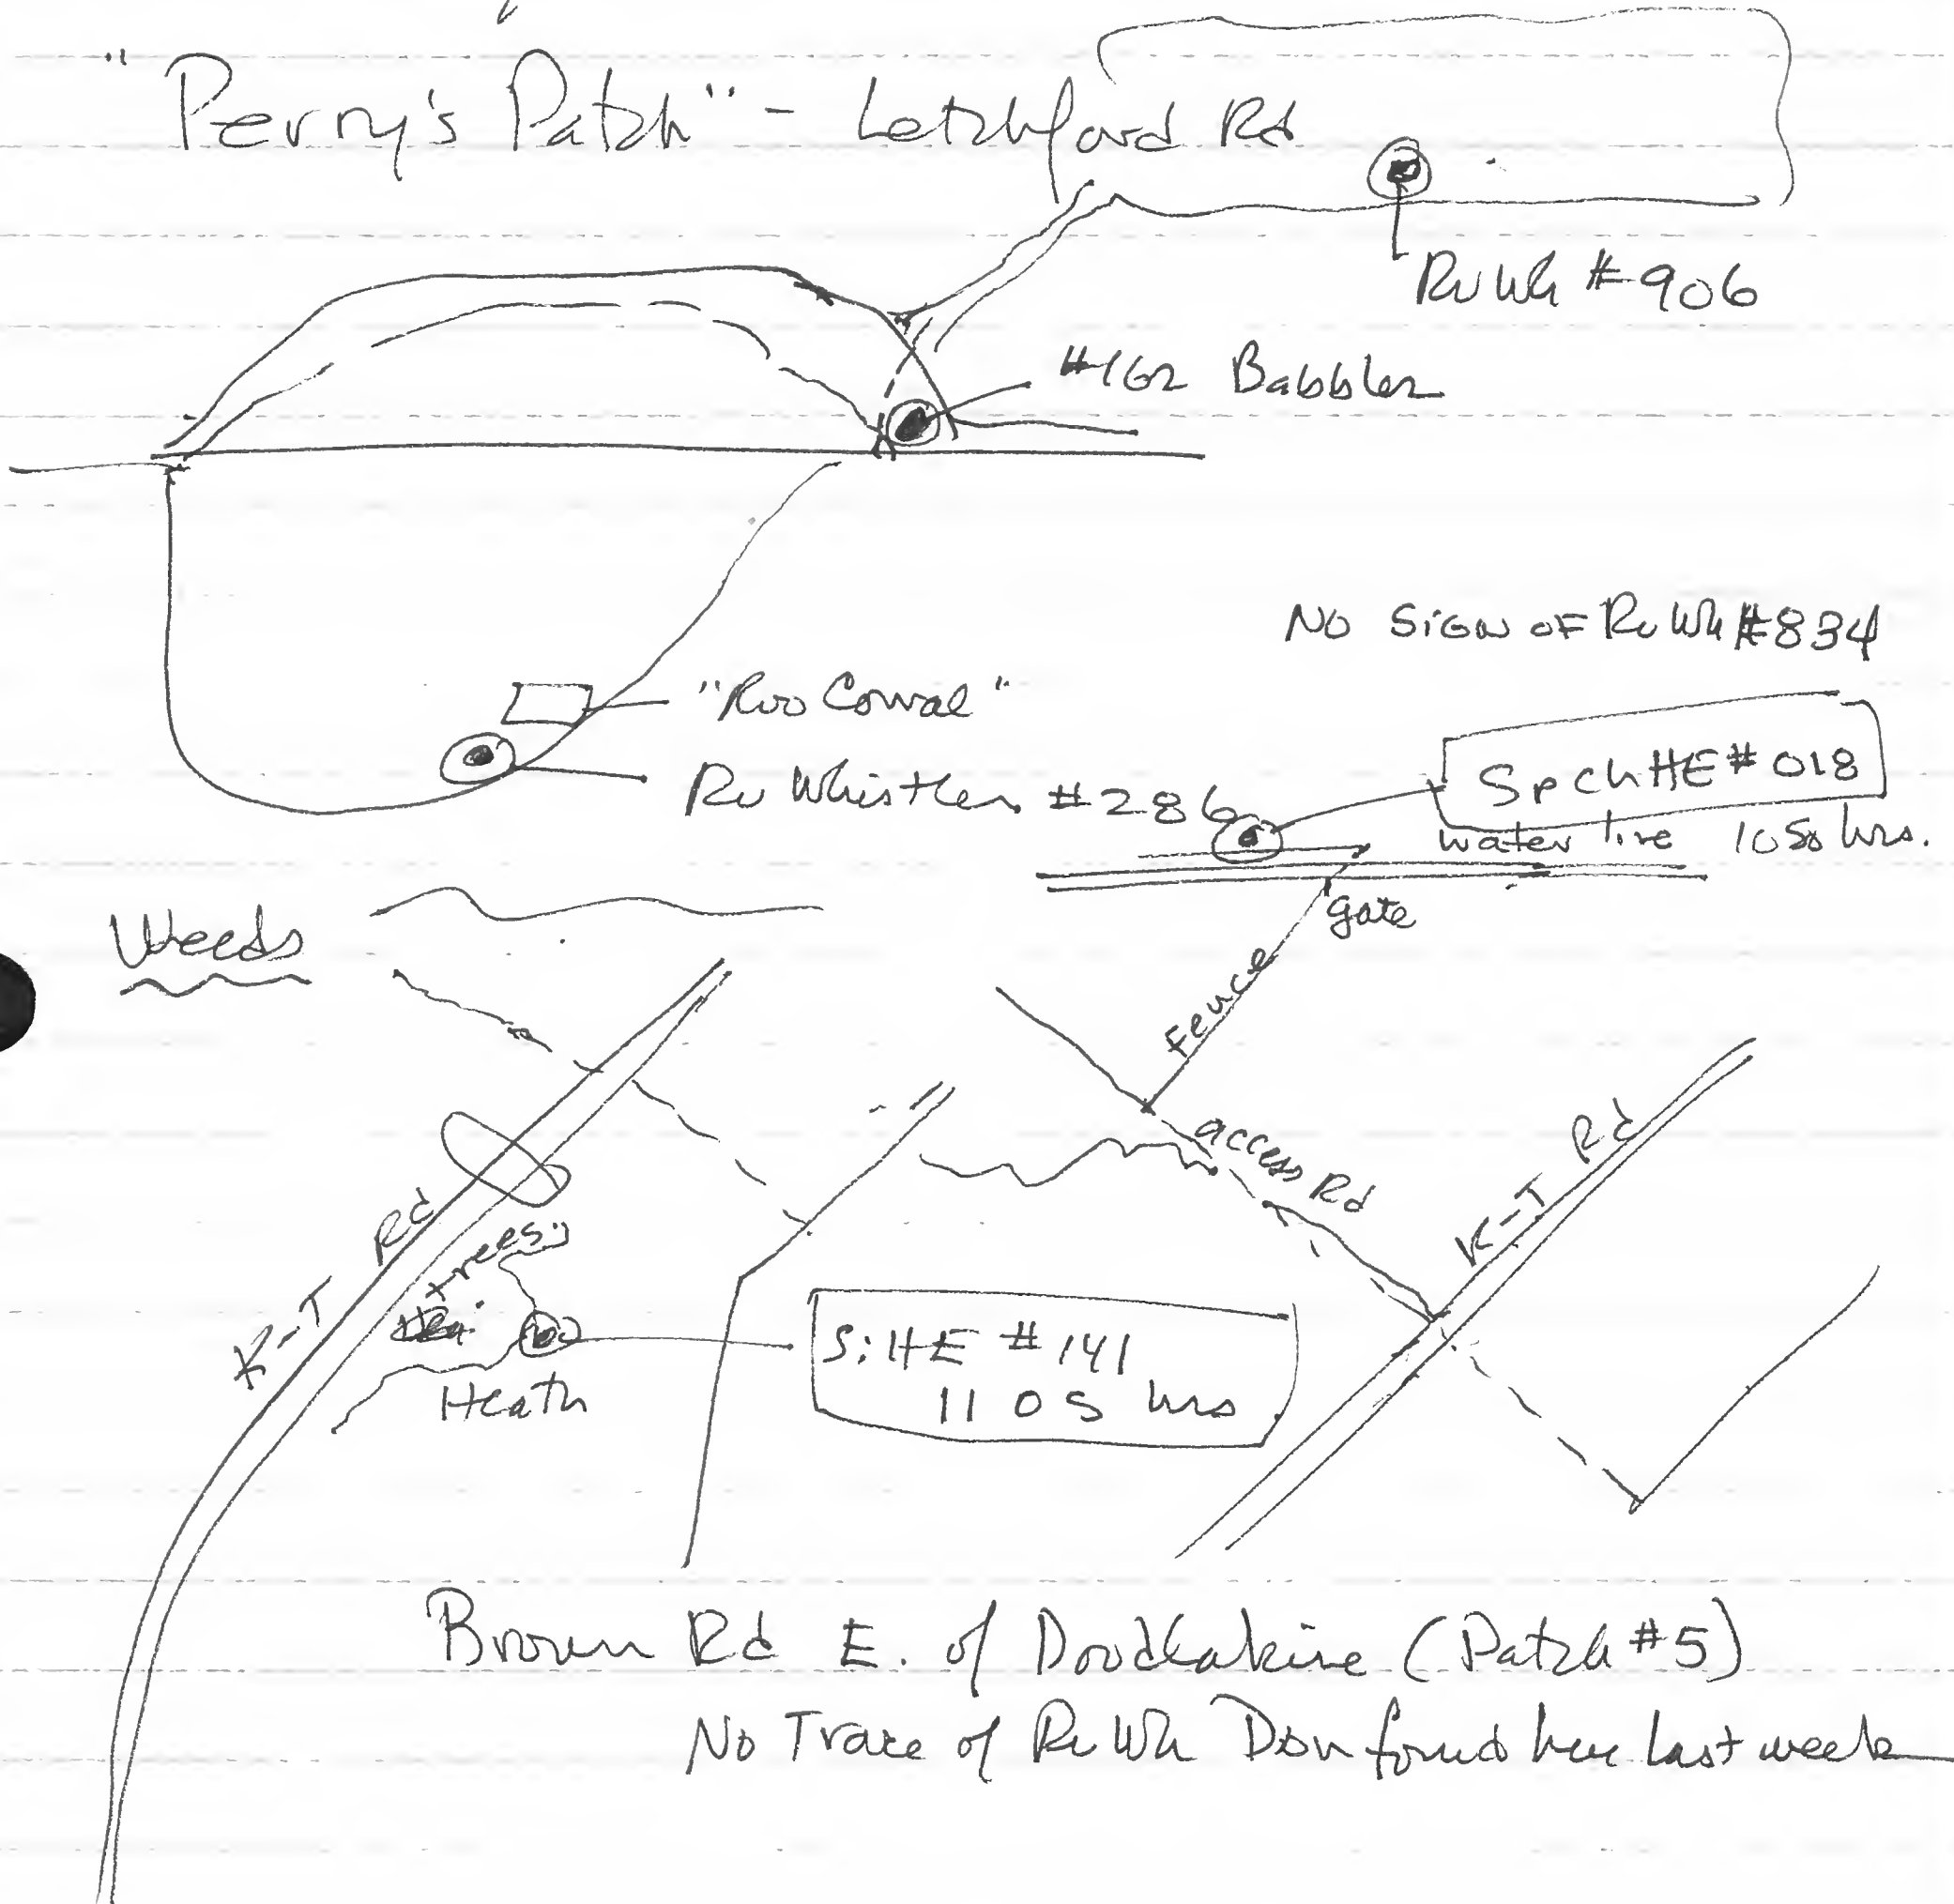 "Perry's Patch" - Letchford Rd
Ru Wh #906
#162 Babbler
No Sign of Ru Wh #834
"Roo Corral"
Ru Whistler #286
Sp ch HE # 018
water line 1050 hrs.
gate
Weeds
Fence
access Rd
K-T Rd
K-T Rd
trees
Heath
S: HE #141
1105 hrs
Brown Rd E. of Doodlakine (Patch #5)
No Trace of Ru Wh Don found here last week